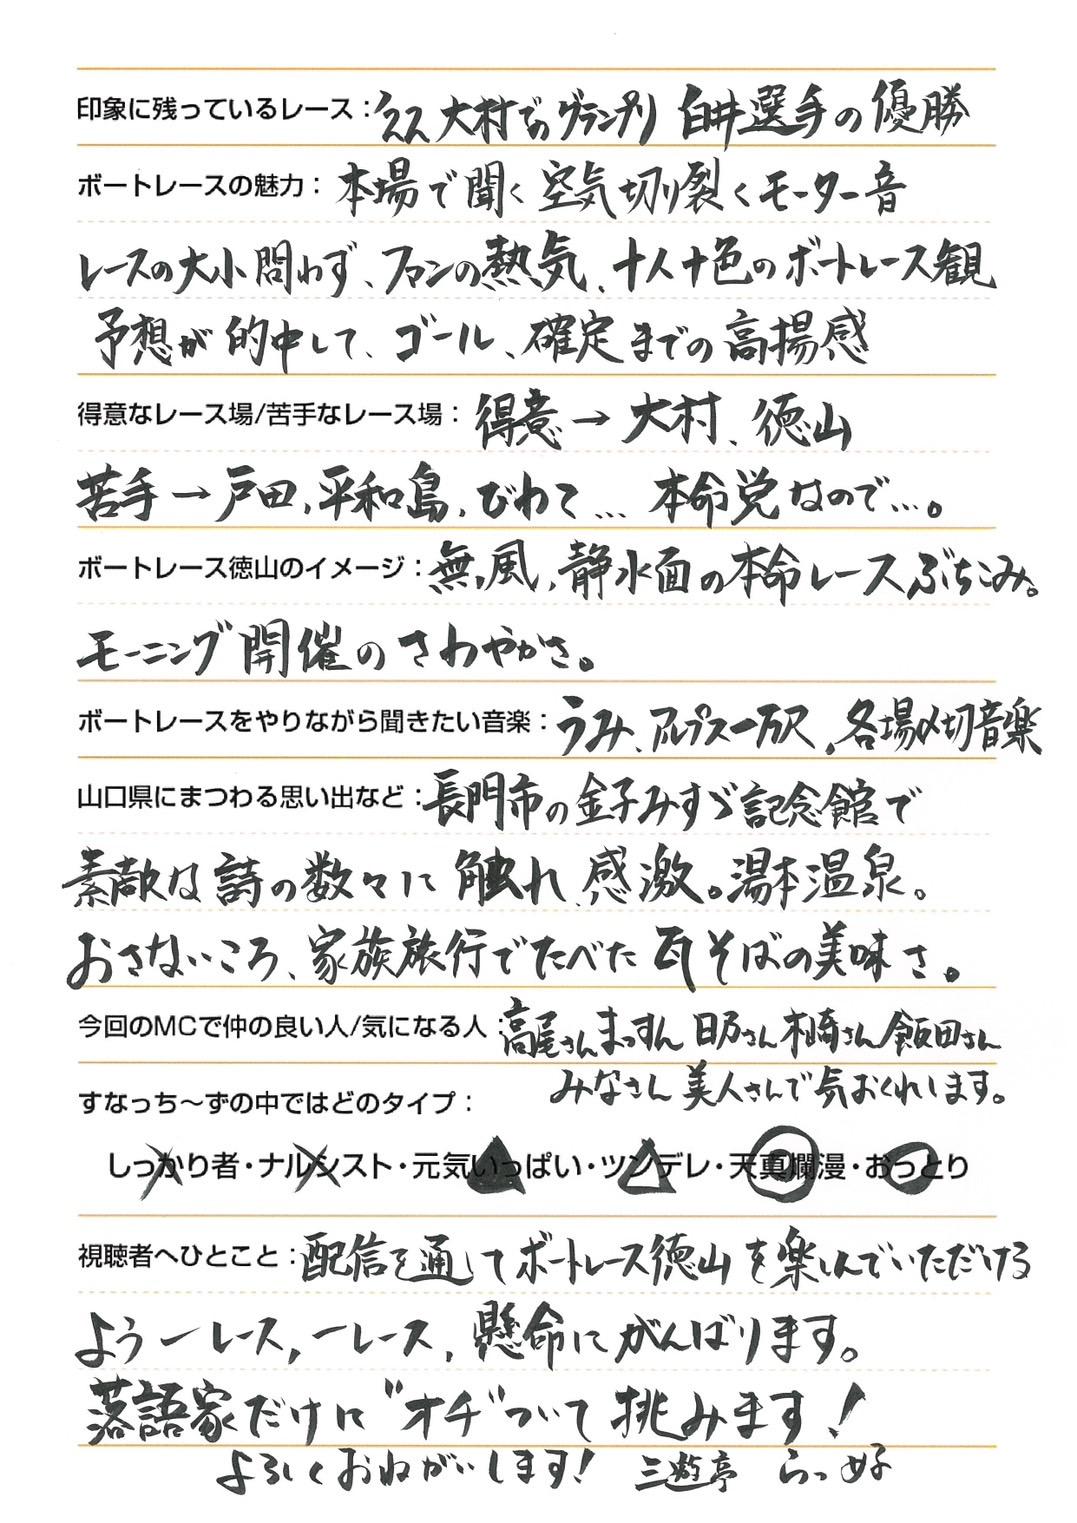 印象に残っているレース：'22 大村でのグランプリ 白井選手の優勝
ボートレースの魅力： 本場で聞く空気切り裂くモーター音
レースの大小問わず、ファンの熱気、十人十色のボートレース観
予想が的中して、ゴール、確定までの高揚感
得意なレース場/苦手なレース場： 得意→大村、徳山
苦手→戸田、平和島、びわこ… 本命党なので…。
ボートレース徳山のイメージ：無風、静水面の本命レースぶちこみ。
モーニング開催のさわやかさ。
ボートレースをやりながら聞きたい音楽：うみ、アルプス一万尺、各場〆切音楽
山口県にまつわる思い出など：長門市の金子みすゞ記念館で
素敵な詩の数々に触れ感激。湯本温泉。
おさないころ、家族旅行でたべた瓦そばの美味さ。
今回のMCで仲の良い人/気になる人：高尾さんまっすん 日乃さん 木崎さん 飯田さん
みなさん美人さんで気おくれします。
すなっち～ずの中ではどのタイプ：
しっかり者・ナルシスト・元気いっぱい・ツンデレ・天真爛漫・おっとり
視聴者へひとこと：配信を通してボートレース徳山を楽しんでいただける
よう一レース,一レース,懸命にがんばります。
落語家だけに"オチ"ついて挑みます！
よろしくおねがいします！ 三遊亭 らっ好